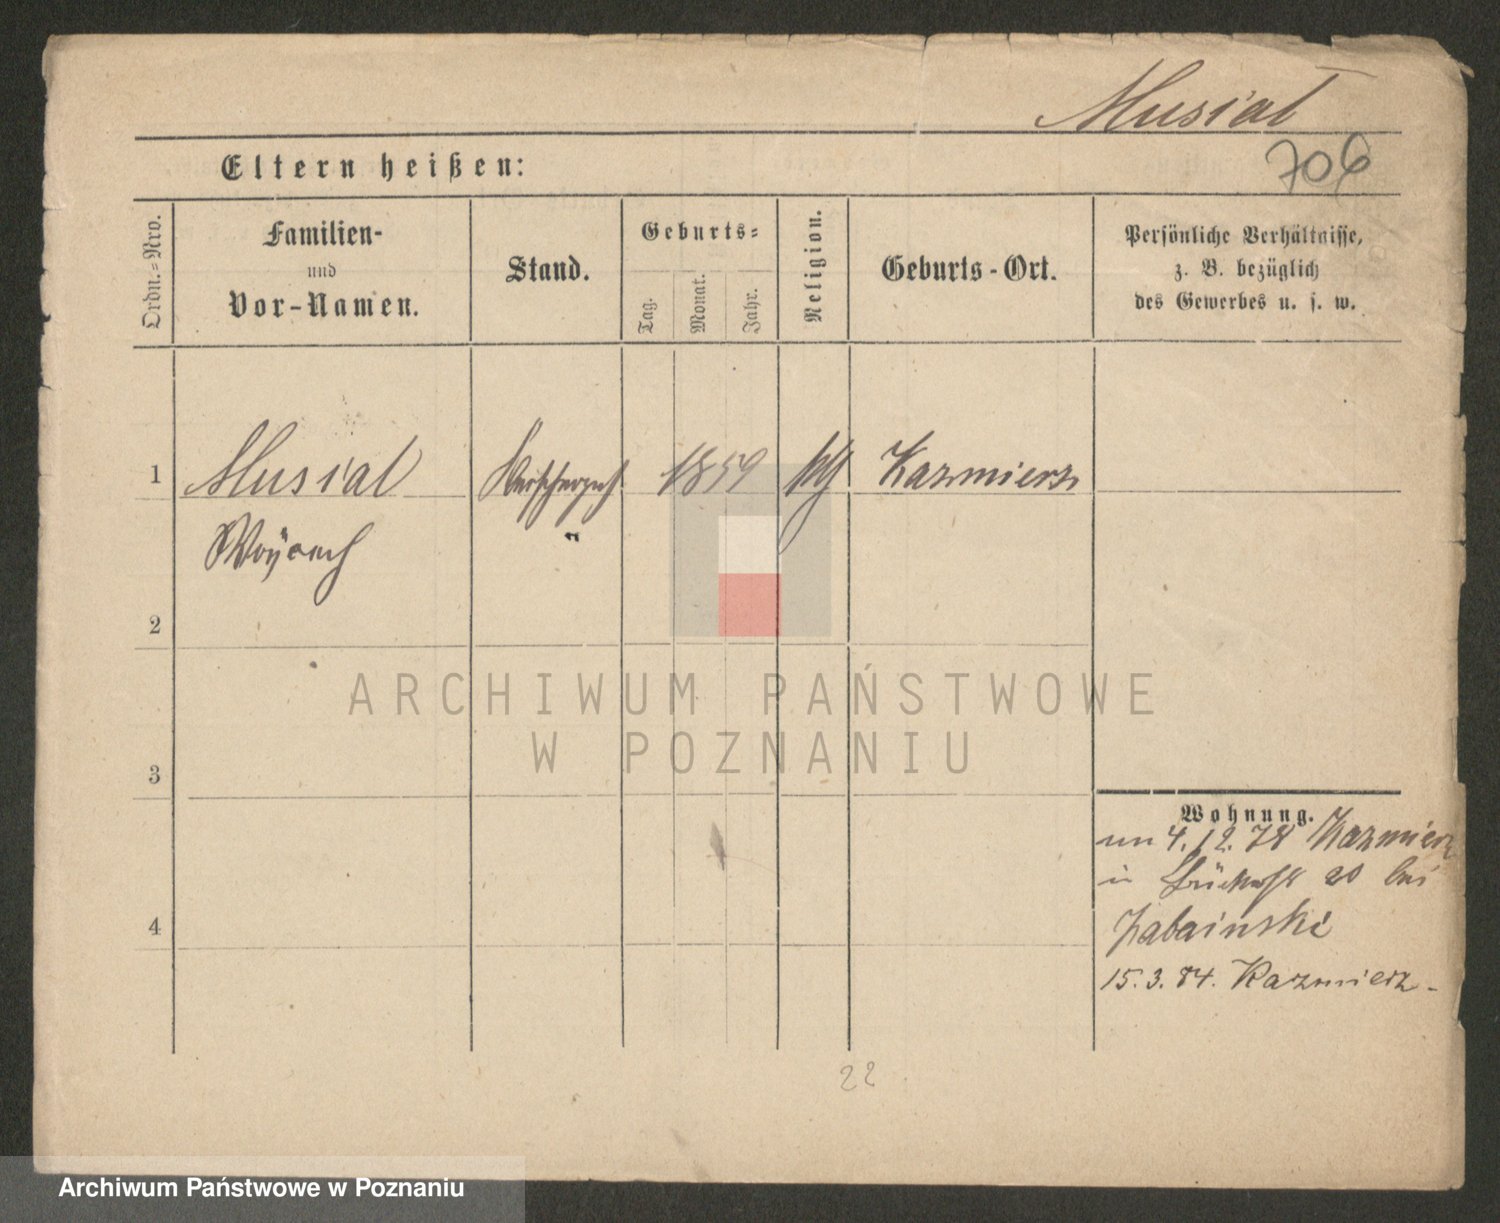 Musial
706
Eltern heißen:
Ordn.=Nro.
Familien-
und
Vor-Namen.
Stand.
Geburts=
Tag.
Monat.
Jahr.
Religion.
Geburts-Ort.
Persönliche Verhältnisse,
z. B. bezüglich
des Gewerbes u. s. w.
1 Musial 1859 Kazmierz
2
3
4
Wohnung.
4.12.78 Kazmierz
in 20 bei
Zabainski
15.3.84. Kazmierz-
22
ARCHIWUM PAŃSTWOWE
W POZNANIU
Archiwum Państwowe w Poznaniu